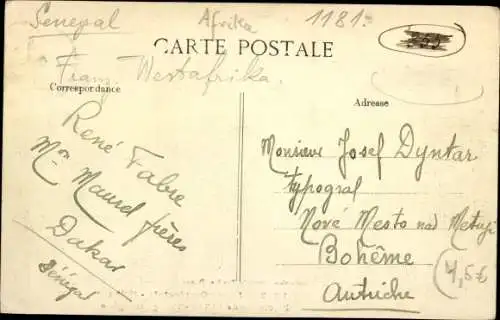 Senegal Afrika 1181.
CARTE POSTALE
Franz. Westafrika.
Correspondance
Adresse
René Fabre
Mon Maurel frères
Dakar
Sénégal
Monsieur Josef Dyntar
typograf
Nové Mesto nad Metují
Bohême
Autriche
4,5€